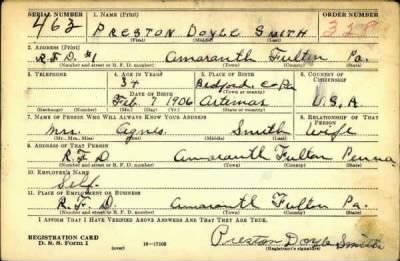 SERIAL NUMBER 1. NAME (Print) ORDER NUMBER
463 PRESTON DOYLE SMITH
(First) (Middle) (Last)
2. ADDRESS (Print)
R.F.D. #1 Amaranth Fulton Pa.
(Number and street or R. F. D. number) (Town) (County) (State)
3. TELEPHONE 4. AGE IN YEARS 5. PLACE OF BIRTH 6. COUNTRY OF CITIZENSHIP
34 Bedford Co Pa
DATE OF BIRTH (Town or county)
Feb. 7 1906 Artemas U.S.A
(Exchange) (Number) (Mo.) (Day) (Yr.) (State or country)
7. NAME OF PERSON WHO WILL ALWAYS KNOW YOUR ADDRESS 8. RELATIONSHIP OF THAT PERSON
Mrs. Agnes Smith Wife
(Mr., Mrs., Miss) (First) (Middle) (Last)
9. ADDRESS OF THAT PERSON
R.F.D Amaranth Fulton Penna
(Number and street or R. F. D. number) (Town) (County) (State)
10. EMPLOYER'S NAME
Self.
11. PLACE OF EMPLOYMENT OR BUSINESS
R.F.D. Amaranth Fulton Pa.
(Number and street or R. F. D. number) (Town) (County) (State)
I AFFIRM THAT I HAVE VERIFIED ABOVE ANSWERS AND THAT THEY ARE TRUE.
REGISTRATION CARD
D. S. S. Form 1 (over) 16—17105 Preston Doyle Smith
(Registrant's signature)